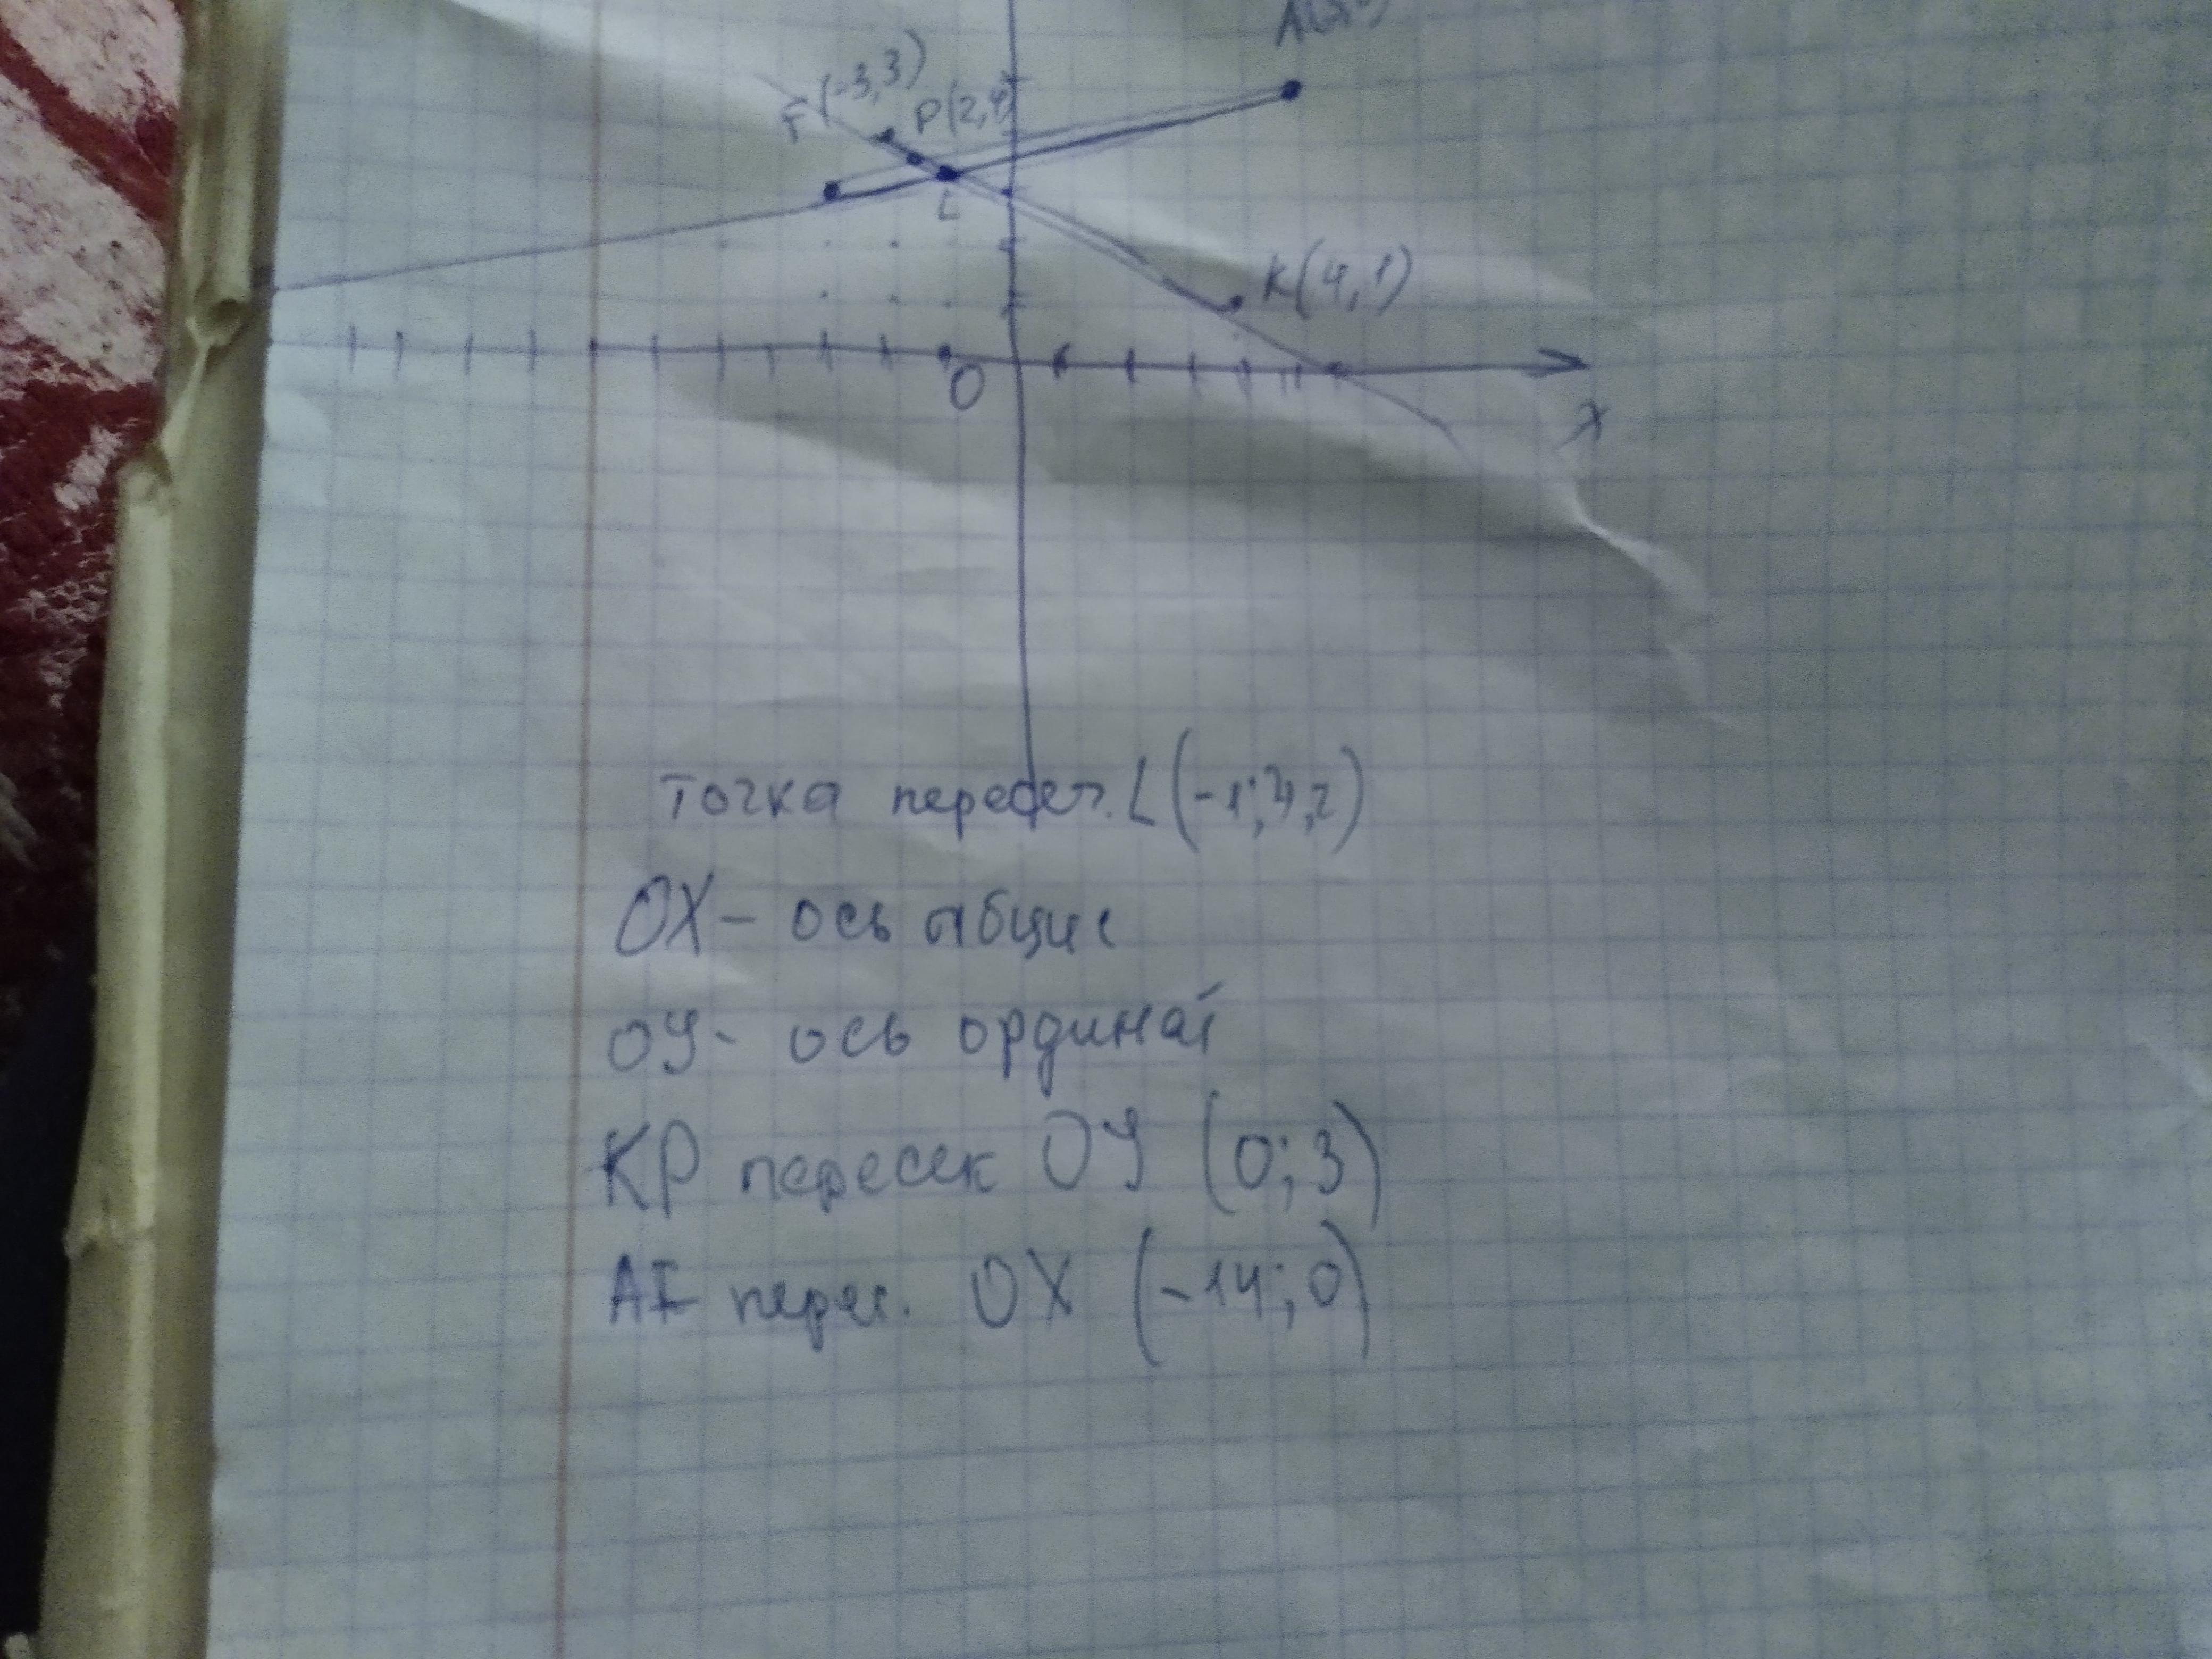 F(-3,3)
P(2,4)
L
K(4,1)
O
X
точка пересеч. L (-1; 3,2)
OX - ось абцис
ОУ - ось ординат
КР пересек ОУ (0; 3)
AF перес. OX (-14; 0)